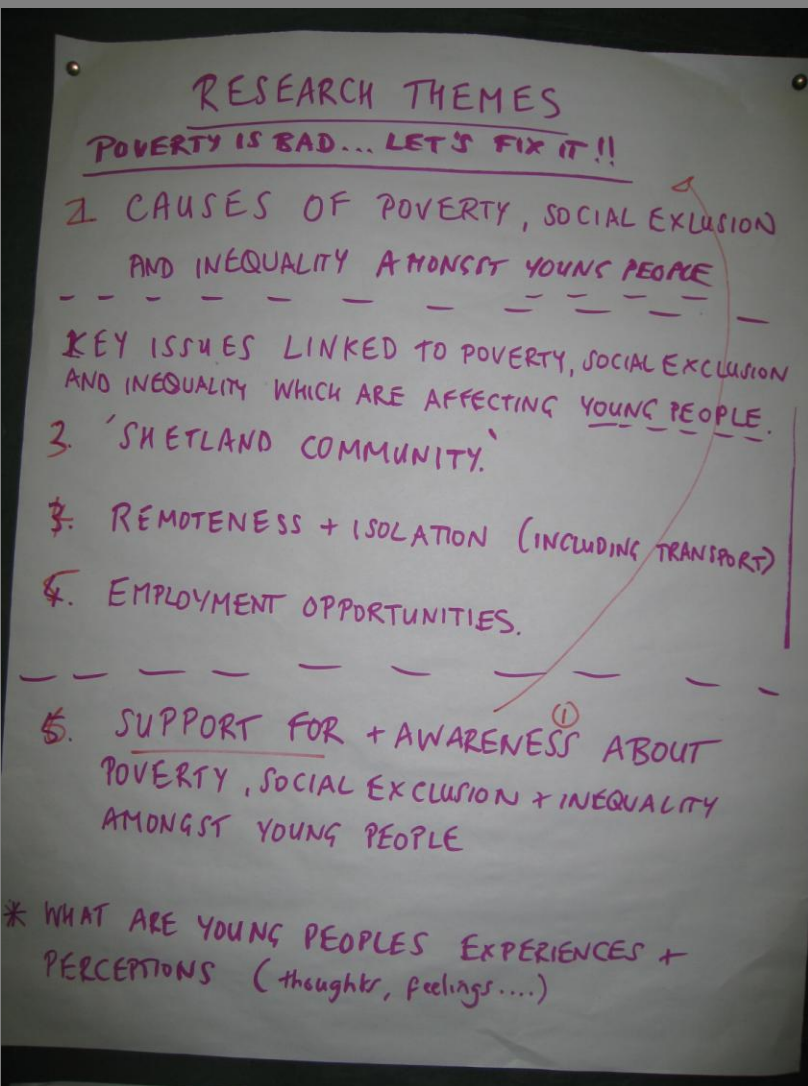 RESEARCH THEMES
POVERTY IS BAD... LET'S FIX IT!!
2 CAUSES OF POVERTY, SOCIAL EXLUSION
AND INEQUALITY AMONGST YOUNG PEOPLE
KEY ISSUES LINKED TO POVERTY, SOCIAL EXCLUSION
AND INEQUALITY WHICH ARE AFFECTING YOUNG PEOPLE.
3. 'SHETLAND COMMUNITY.'
REMOTENESS + ISOLATION (INCLUDING TRANSPORT)
EMPLOYMENT OPPORTUNITIES.
①
5. SUPPORT FOR + AWARENESS ABOUT
POVERTY, SOCIAL EXCLUSION + INEQUALITY
AMONGST YOUNG PEOPLE
* WHAT ARE YOUNG PEOPLES EXPERIENCES +
PERCEPTIONS (thoughts, feelings....)